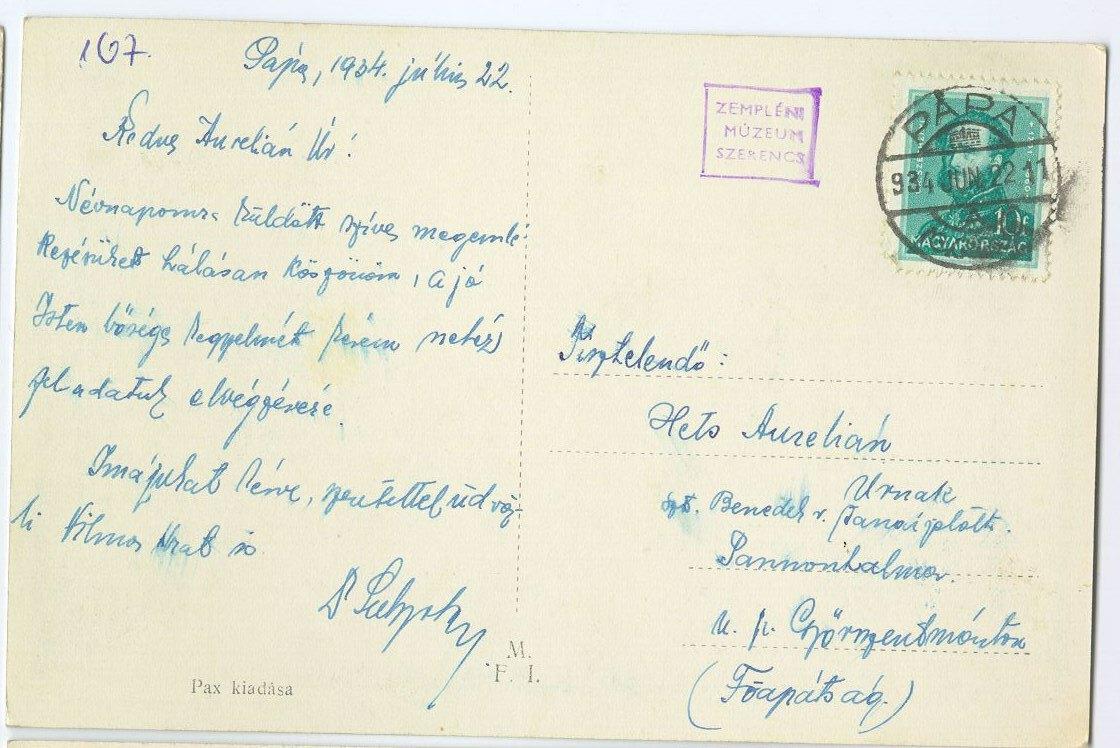 167.
Pápa, 1934. július 22.
Kedves Aurelián Úr!
Névnapomra küldött szíves megemlé-
kezésüket hálásan köszönöm, a jó
Isten bőséges kegyelmét kérem nehéz
feladatuk elvégzésére.
Imájukat kérve, szeretettel üdvöz-
li Vilmos Urat is
Dr
M.
F. I.
Pax kiadása
ZEMPLÉNI
MÚZEUM
SZERENCS
PÁPA
934 JUN. 22 11
10f
MAGYARORSZÁG
Tisztelendő:
Hets Aurelián
Urnak
szt. Benedek r. Tanár jelölt.
Pannonhalma.
u. p. Győrszentmárton
(Főapátság.)